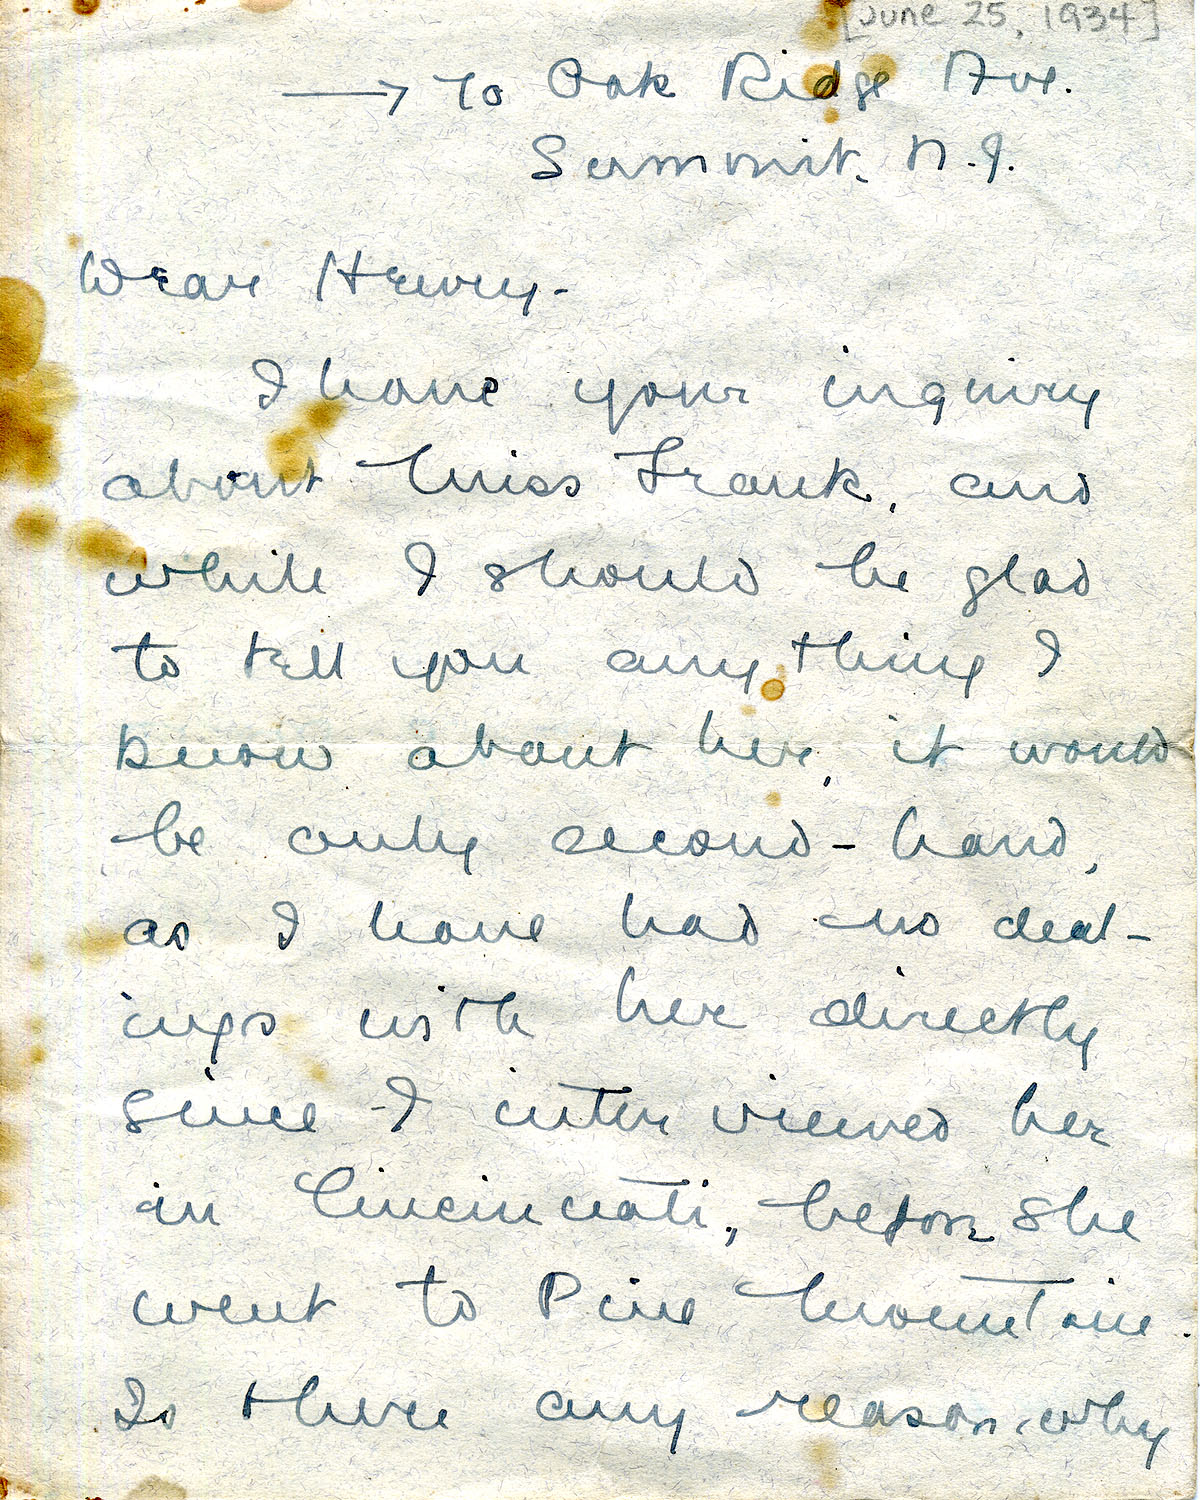 [June 25, 1934]
→ To Oak Ridge Ave.
Summit. N.J.
Dear Henry-
I have your inquiry
about Miss Frank, and
while I should be glad
to tell you anything I
know about her, it would
be only second-hand,
as I have had no deal-
ings with her directly
since I interviewed her
in Cincinnati, before she
went to Pine Mountain.
Is there any reason why